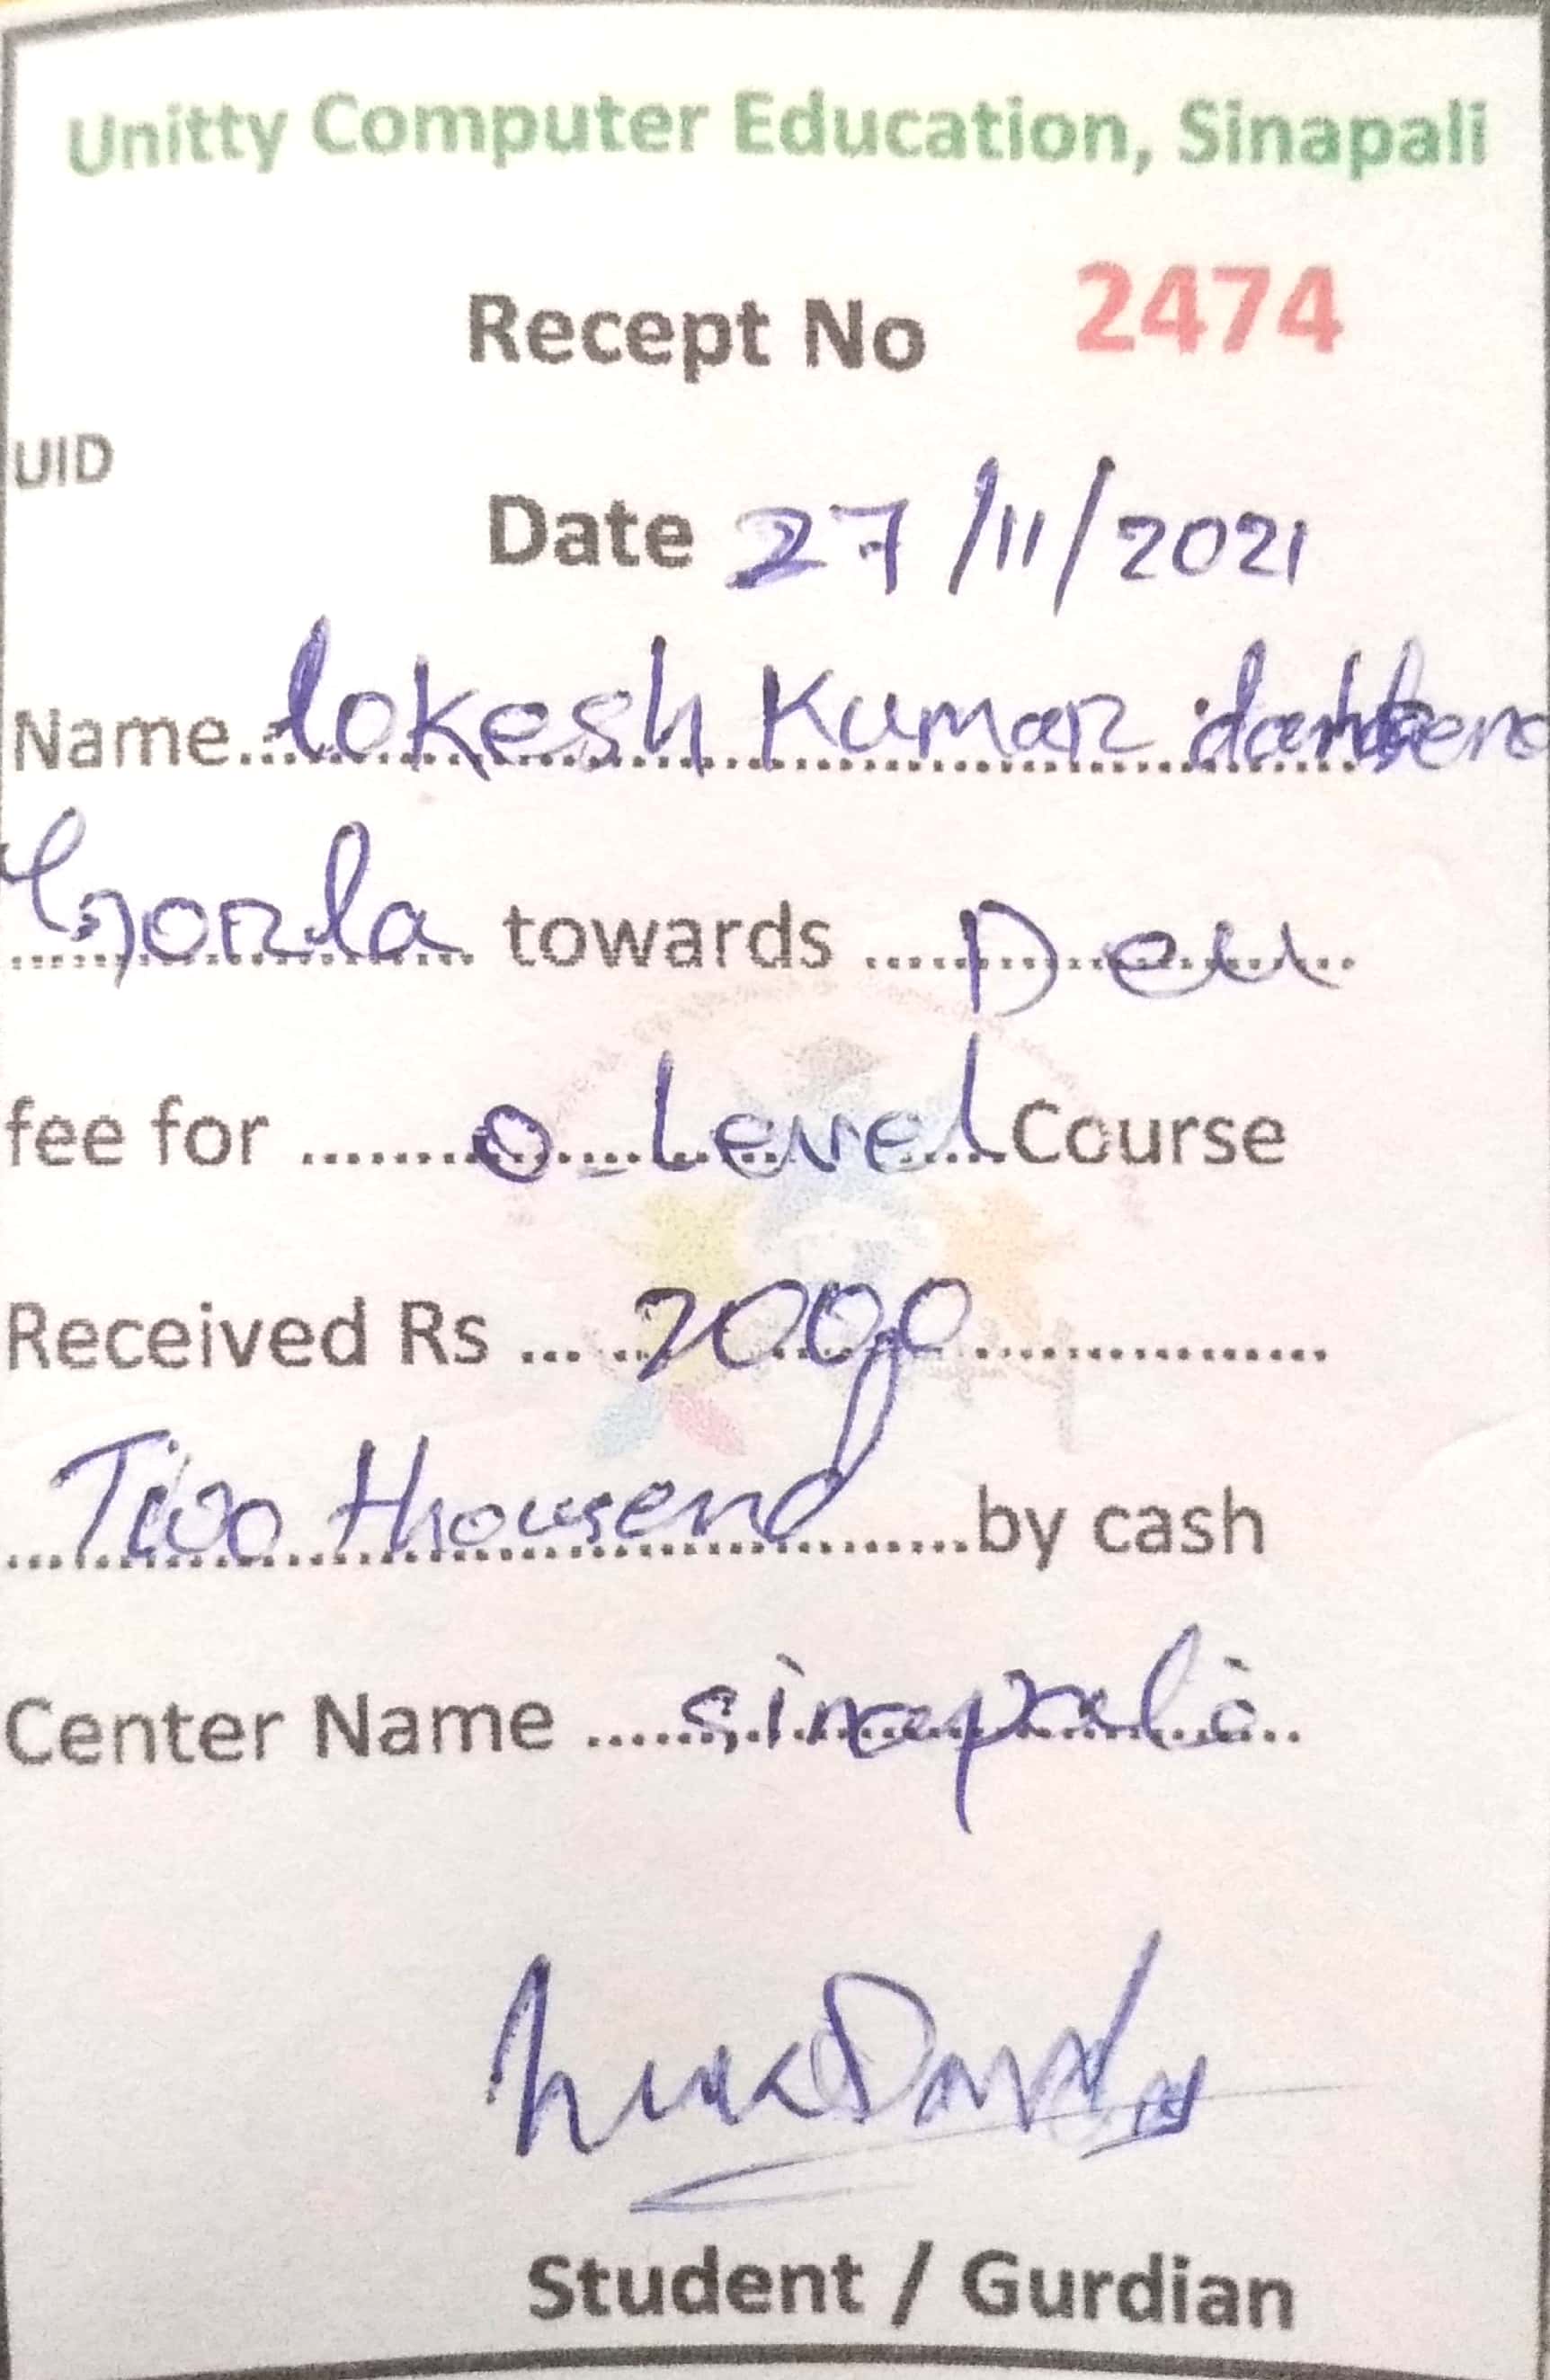 Unitty Computer Education, Sinapali
Recept No 2474
UID
Date 27/11/2021
Name lokesh Kumar
towards Deu
fee for O-Level Course
Received Rs 2000
Two thousend by cash
Center Name sinapali
Student / Gurdian